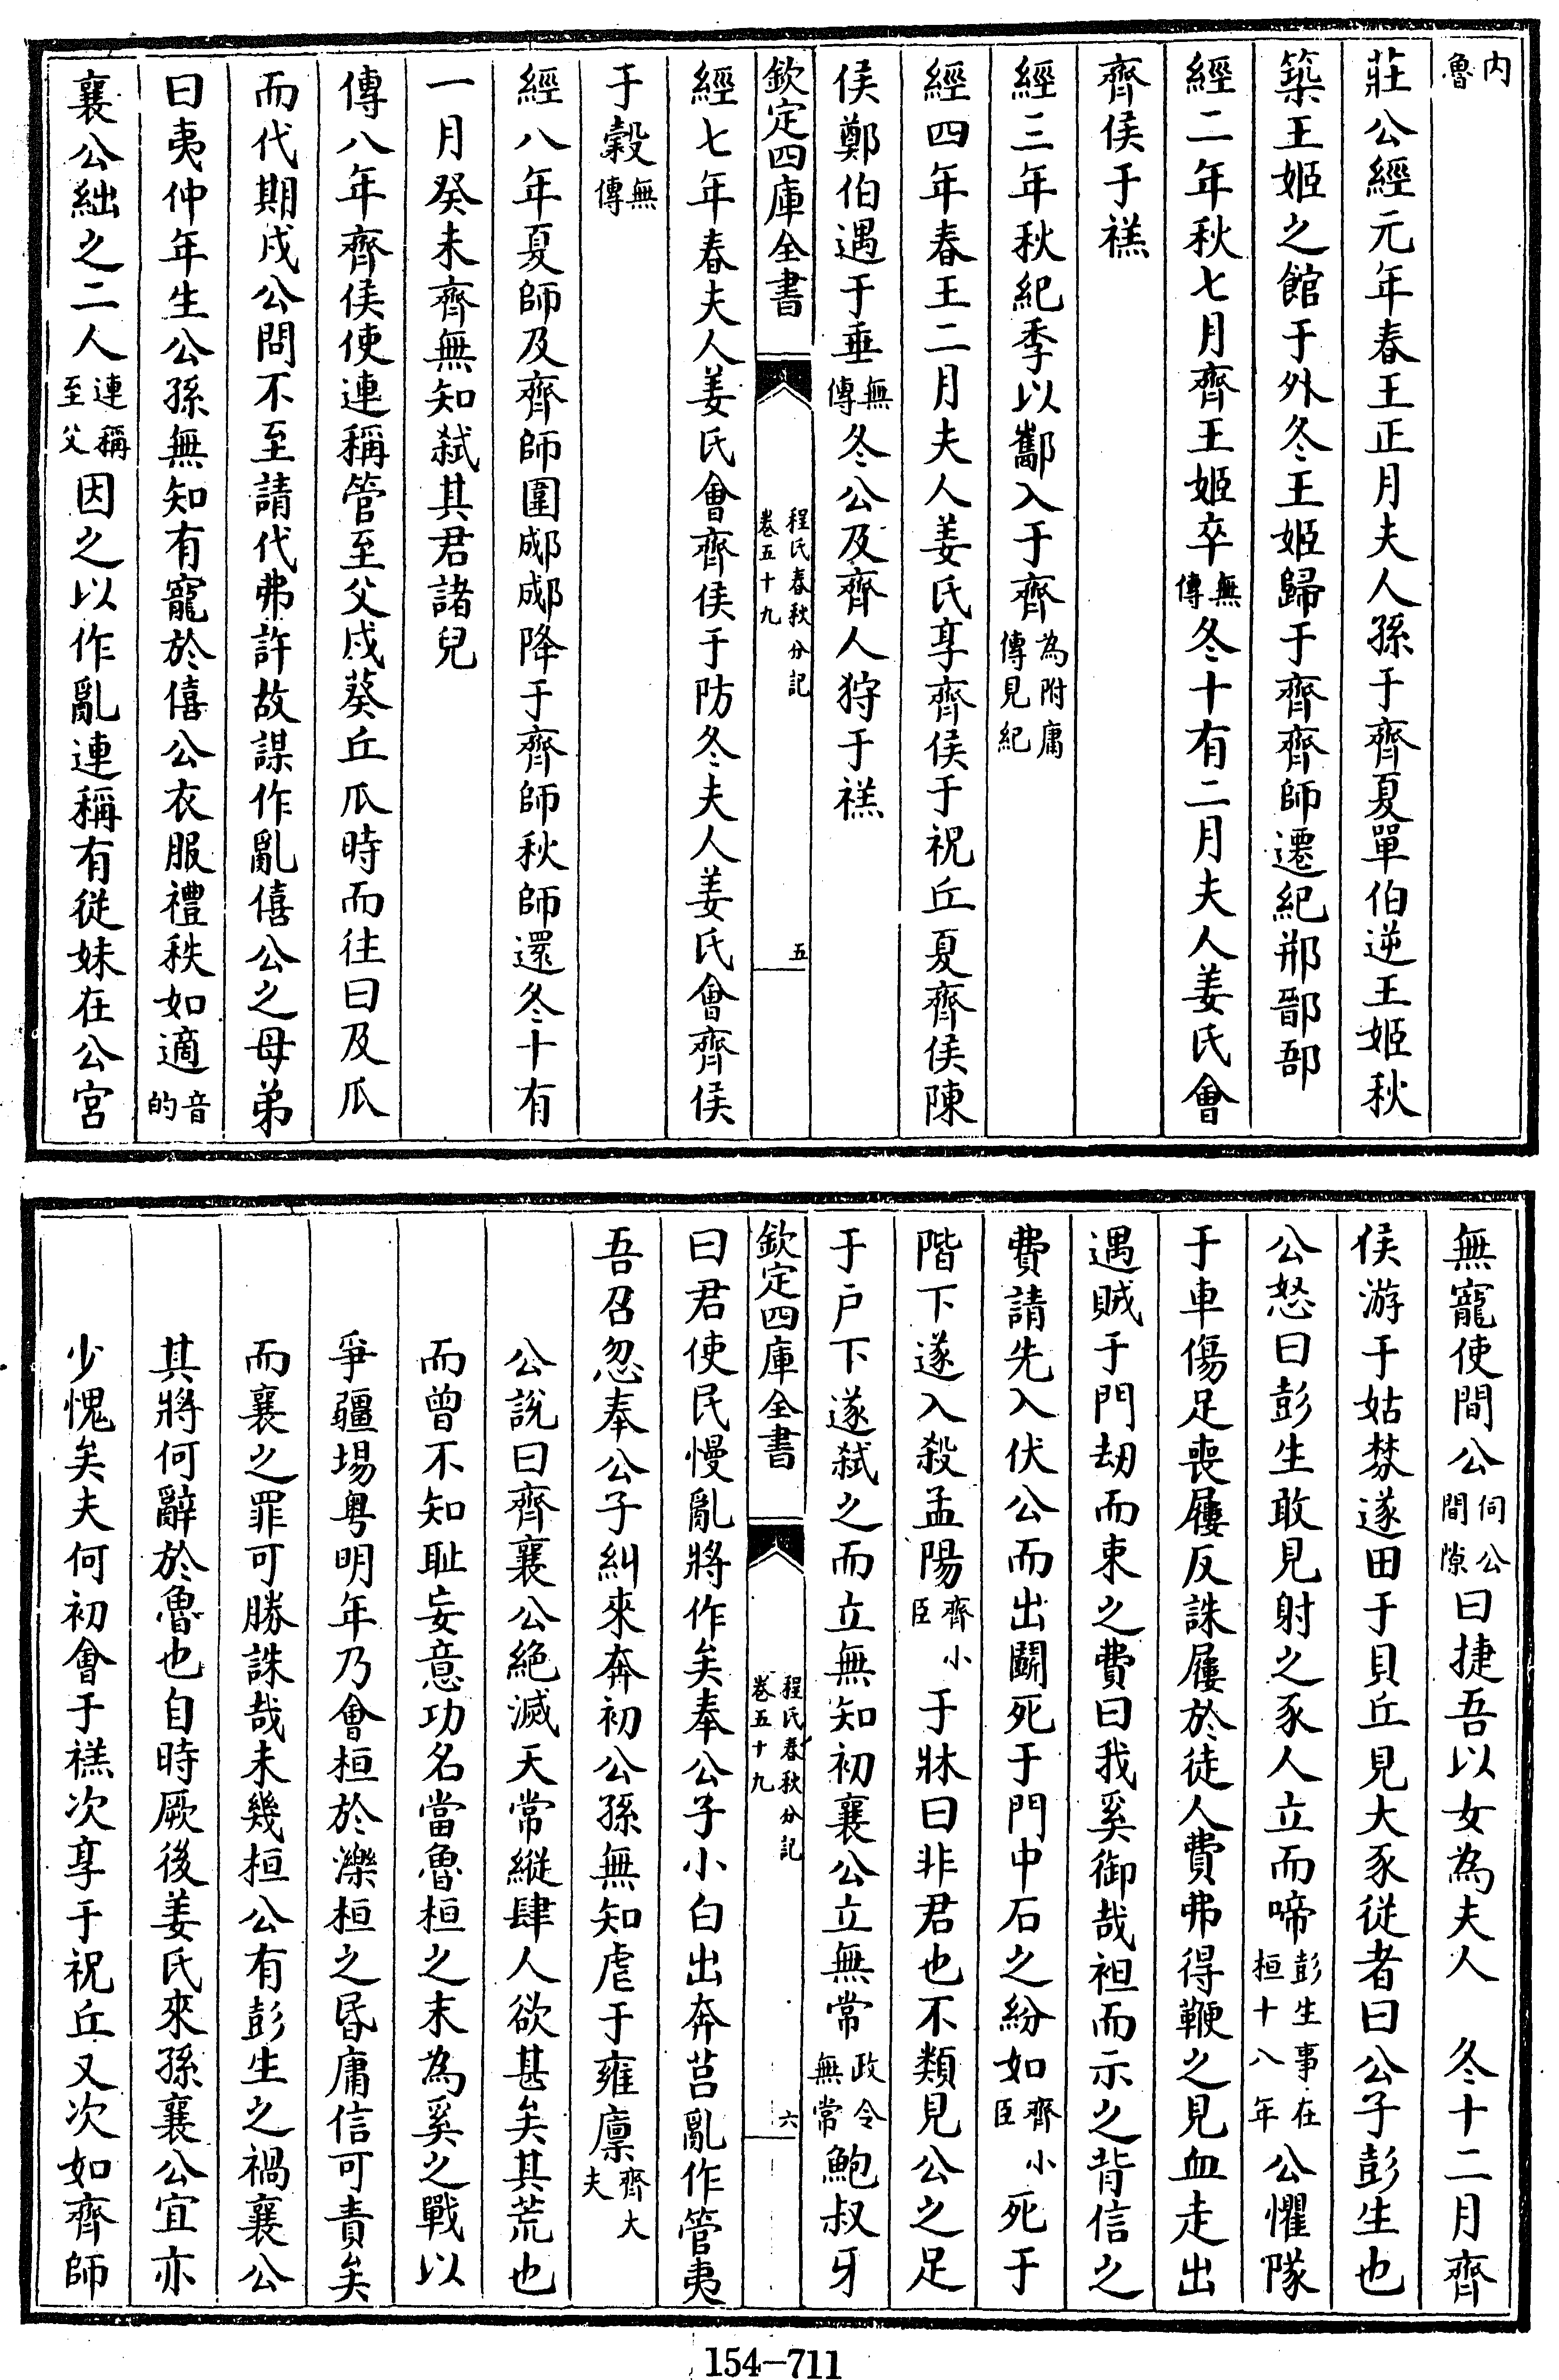 内魯
莊公經元年春王正月夫人孫于齊夏單伯逆王姬秋
築王姬之館于外冬王姬歸于齊齊師遷紀郱鄑郚
經二年秋七月齊王姬卒無傳冬十有二月夫人姜氏會
齊侯于禚
經三年秋紀季以酅入于齊為附庸傳見紀
經四年春王二月夫人姜氏享齊侯于祝丘夏齊侯陳
侯鄭伯遇于垂無傳冬公及齊人狩于禚
欽定四庫全書 程氏春秋分記卷五十九 五
經七年春夫人姜氏會齊侯于防冬夫人姜氏會齊侯
于穀無傳
經八年夏師及齊師圍郕郕降于齊師秋師還冬十有
一月癸未齊無知弑其君諸兒
傳八年齊侯使連稱管至父戍葵丘瓜時而往曰及瓜
而代期戍公問不至請代弗許故謀作亂僖公之母弟
曰夷仲年生公孫無知有寵於僖公衣服禮秩如適音的
襄公絀之二人連稱至父因之以作亂連稱有從妹在公宮
無寵使間公伺公間隙曰捷吾以女為夫人 冬十二月齊
侯游于姑棼遂田于貝丘見大豕從者曰公子彭生也
公怒曰彭生敢見射之豕人立而啼彭生事在桓十八年公懼隊
于車傷足喪屨反誅屨於徒人費弗得鞭之見血走出
遇賊于門劫而束之費曰我奚御哉袒而示之背信之
費請先入伏公而出鬭死于門中石之紛如齊小臣死于
階下遂入殺孟陽齊小臣于牀曰非君也不類見公之足
于戶下遂弑之而立無知初襄公立無常政令無常鮑叔牙
欽定四庫全書 程氏春秋分記卷五十九 六
曰君使民慢亂將作矣奉公子小白出奔莒亂作管夷
吾召忽奉公子糾來奔初公孫無知虐于雍廩齊大夫
公說曰齊襄公絕滅天常縱肆人欲甚矣其荒也
而曾不知恥妄意功名當魯桓之末為奚之戰以
爭疆場粤明年乃會桓於濼桓之昏庸信可責矣
而襄之罪可勝誅哉未幾桓公有彭生之禍襄公
其將何辭於魯也自時厥後姜氏來孫襄公宜亦
少愧矣夫何初會于禚次享于祝丘又次如齊師
154-711